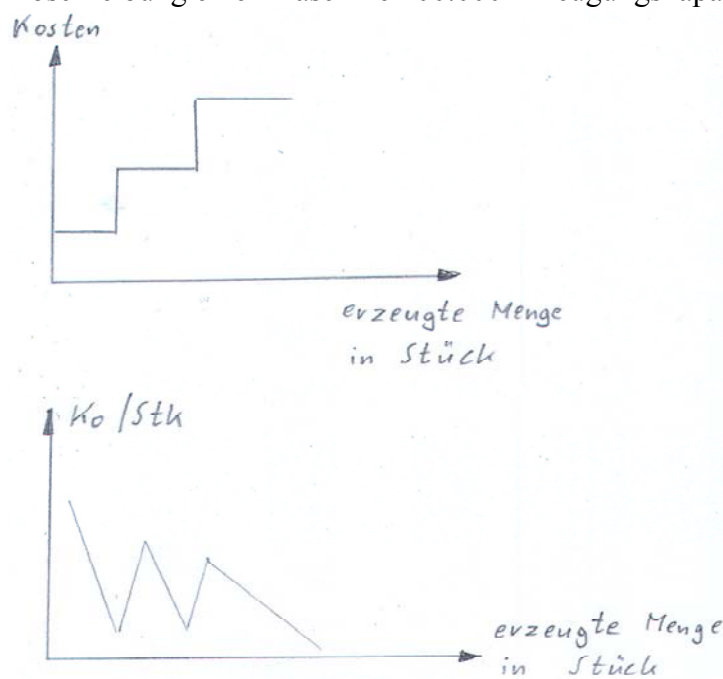 Kosten
erzeugte Menge
in Stück
Ko/Stk
erzeugte Menge
in Stück